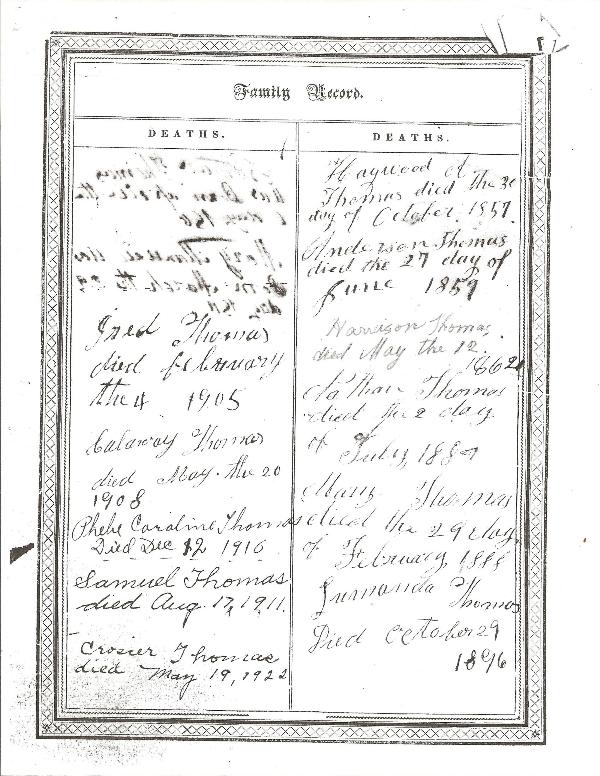 Family Record.
DEATHS.
Fred Thomas
died february
the 4 1905
Calaway Thomas
died May the 20
1908
Phebe Caroline Thomas
Died Dec 12 1916
Samuel Thomas
died Aug. 17, 1911.
Crosier Thomas
died May 19, 1922
DEATHS.
Haywood
Thomas died the 30
day of October 1857.
Anderson Thomas
died the 27 day of
June 1859
Harrison Thomas
died May the 12
1862
Nathan Thomas
died the 2 day
of July 1887
Mary Thomas
died the 29 day
of February 1888
Thomas
Died October 29
1896